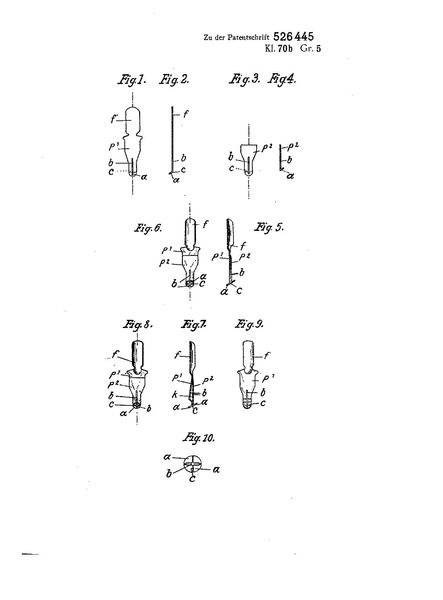 Zu der Patentschrift 526 445
Kl. 70b Gr. 5
Fig.1. Fig.2. Fig.3. Fig4.
f f
p¹ p² p²
b b b b
c c c a
a a
Fig.6. Fig.5.
f f
p¹ p¹ p²
p²
b a c b
a c
Fig.8. Fig.7. Fig.9.
f f f
p¹ p¹ p² p¹
p²
b k b b
c a a c
a b c
Fig.10.
a
b a
c